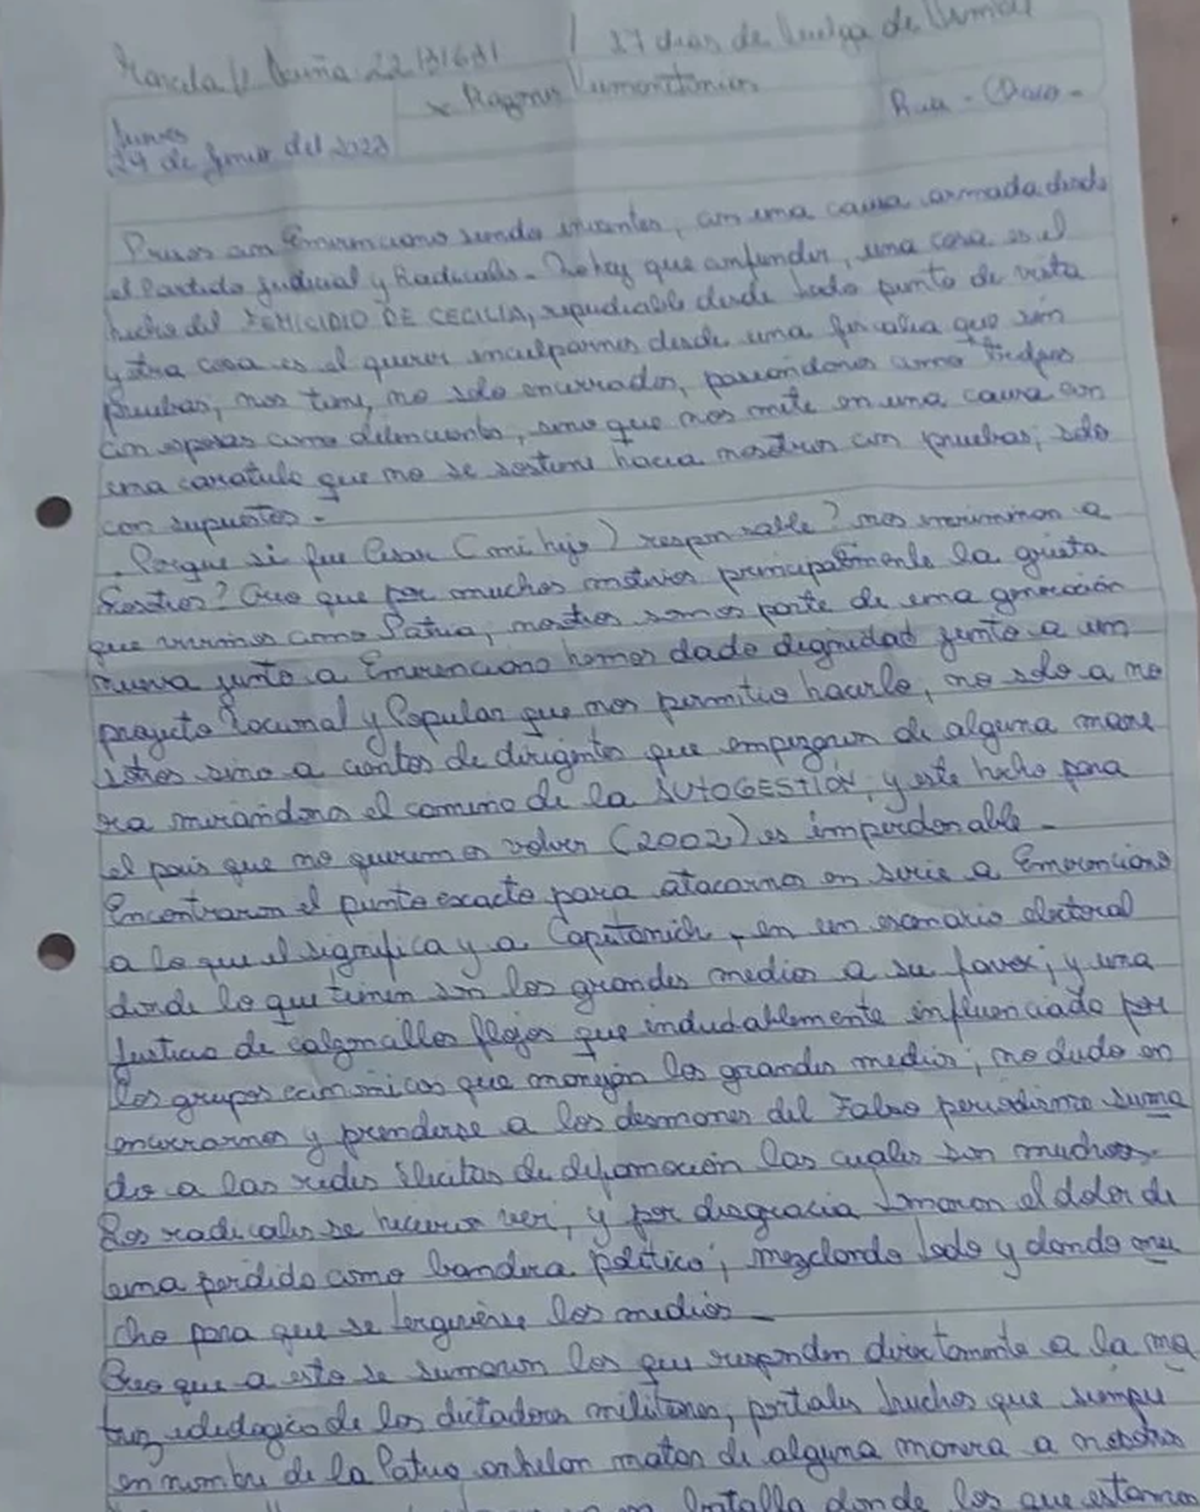 Marcela V. Acuña 22.131.631 / 17 dias de huelga de
x Razones Humanitarias
Rcia - Chaco -
Lunes
24 de Junio del 2023
Presos con Emerenciano siendo inocentes, con una causa armada desde
el Partido Judicial y Radicales. No hay que confundir, una cosa es el
hecho del FEMICIDIO DE CECILIA, repudiable desde todo punto de vista
y otra cosa es el querer inculparnos desde una fiscalia que sin
pruebas, nos tiene, no solo encerrados, paseandonos como
con esposas como delincuentes, sino que nos mete en una causa con
una caratula que no se sostiene hacia nosotros con pruebas, solo
con supuestos -
. Porque si fue Cesar (mi hijo) responsable? nos incriminan a
nosotros? Creo que por muchos motivos principalmente la grieta
que vivimos como Patria, nosotros somos parte de una generación
nueva junto a Emerenciano hemos dado dignidad junto a un
proyecto Nacional y Popular que nos permitio hacerlo, no solo a no
sotros sino a cientos de dirigentes que empezaron de alguna mane
ra mirandonos el camino de la AUTOGESTIÓN, y este hecho para
el pais que no queremos volver (2002) es imperdonable -
Encontraron el punto exacto para atacarnos en serie a Emerenciano
a lo que el significa y a Capitanich, en un escenario electoral
donde lo que tienen son los grandes medios a su favor; y una
Justicia de calzoncillos flojos que indudablemente influenciado por
los grupos economicos que manejan los grandes medios; no dudo en
encerrarnos y prenderse a los desmanes del Falso periodismo suma
do a las redes ilicitas de difamación las cuales son muchas-
Los radicales se hicieron ver, y por desgracia tomaron el dolor de
una perdida como bandera politica; mezclando todo y dando mu
cho para que se tergiverse los medios -
Creo que a esto se sumaron los que responden directamente a la ma
triz idelogica de los dictadores militares, portales truchos que siempre
en nombre de la Patria anhelan matar de alguna manera a nosotros
batalla donde los que estamos